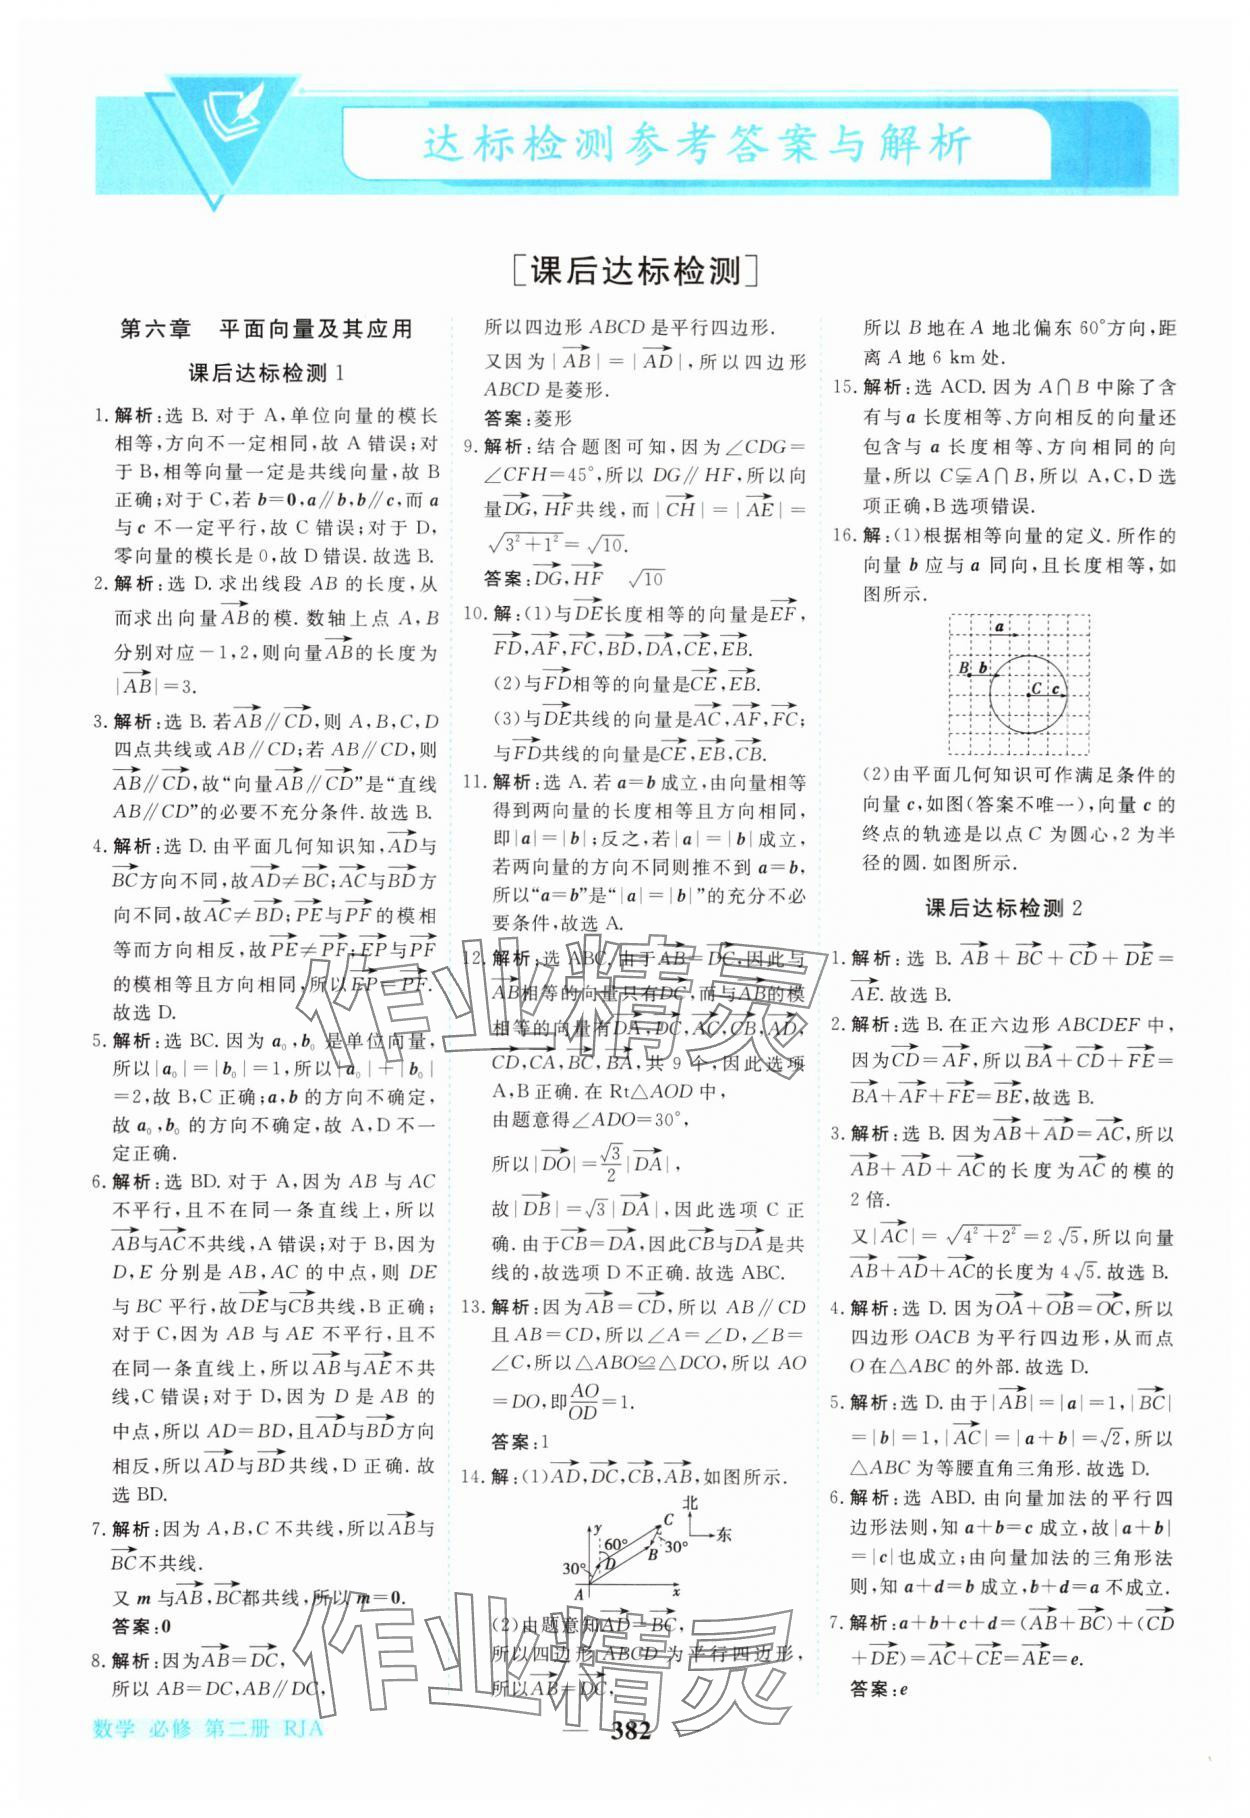 达标检测参考答案与解析
[课后达标检测]
第六章 平面向量及其应用
课后达标检测 1
1. 解析:选 B. 对于 A,单位向量的模长
相等,方向不一定相同,故 A 错误;对
于 B,相等向量一定是共线向量,故 B
正确;对于 C,若 b=0,a∥b,b∥c,而 a
与 c 不一定平行,故 C 错误;对于 D,
零向量的模长是 0,故 D 错误. 故选 B.
2. 解析:选 D. 求出线段 AB 的长度,从
而求出向量$\overrightarrow{AB}$的模. 数轴上点 A,B
分别对应-1,2,则向量$\overrightarrow{AB}$的长度为
|$\overrightarrow{AB}$|=3.
3. 解析:选 B. 若$\overrightarrow{AB}$∥$\overrightarrow{CD}$,则 A,B,C,D
四点共线或 AB∥CD;若 AB∥CD,则
$\overrightarrow{AB}$∥$\overrightarrow{CD}$,故“向量$\overrightarrow{AB}$∥$\overrightarrow{CD}$”是“直线
AB∥CD”的必要不充分条件. 故选 B.
4. 解析:选 D. 由平面几何知识知,$\overrightarrow{AD}$与
$\overrightarrow{BC}$方向不同,故$\overrightarrow{AD}$≠$\overrightarrow{BC}$;$\overrightarrow{AC}$与$\overrightarrow{BD}$方
向不同,故$\overrightarrow{AC}$≠$\overrightarrow{BD}$;$\overrightarrow{PE}$与$\overrightarrow{PF}$的模相
等而方向相反,故$\overrightarrow{PE}$≠$\overrightarrow{PF}$;$\overrightarrow{EP}$与$\overrightarrow{PF}$
的模相等且方向相同,所以$\overrightarrow{EP}$=$\overrightarrow{PF}$.
故选 D.
5. 解析:选 BC. 因为 a₀,b₀ 是单位向量,
所以|a₀|=|b₀|=1,所以|a₀|+|b₀|
=2,故 B,C 正确;a,b 的方向不确定,
故 a₀,b₀ 的方向不确定,故 A,D 不一
定正确.
6. 解析:选 BD. 对于 A,因为 AB 与 AC
不平行,且不在同一条直线上,所以
$\overrightarrow{AB}$与$\overrightarrow{AC}$不共线,A 错误;对于 B,因为
D,E 分别是 AB,AC 的中点,则 DE
与 BC 平行,故$\overrightarrow{DE}$与$\overrightarrow{CB}$共线,B 正确;
对于 C,因为 AB 与 AE 不平行,且不
在同一条直线上,所以$\overrightarrow{AB}$与$\overrightarrow{AE}$不共
线,C 错误;对于 D,因为 D 是 AB 的
中点,所以 AD=BD,且$\overrightarrow{AD}$与$\overrightarrow{BD}$方向
相反,所以$\overrightarrow{AD}$与$\overrightarrow{BD}$共线,D 正确. 故
选 BD.
7. 解析:因为 A,B,C 不共线,所以$\overrightarrow{AB}$与
$\overrightarrow{BC}$不共线.
又 m 与$\overrightarrow{AB}$,$\overrightarrow{BC}$都共线,所以 m=0.
答案:0
8. 解析:因为$\overrightarrow{AB}$=$\overrightarrow{DC}$,
所以 AB=DC,AB∥DC,
所以四边形 ABCD 是平行四边形.
又因为|$\overrightarrow{AB}$|=|$\overrightarrow{AD}$|,所以四边形
ABCD 是菱形.
答案:菱形
9. 解析:结合题图可知,因为∠CDG=
∠CFH=45°,所以 DG∥HF,所以向
量$\overrightarrow{DG}$,$\overrightarrow{HF}$共线,而|$\overrightarrow{CH}$|=|$\overrightarrow{AE}$|=
$\sqrt{3^2+1^2}$=$\sqrt{10}$.
答案:$\overrightarrow{DG}$,$\overrightarrow{HF}$ $\sqrt{10}$
10. 解:(1)与$\overrightarrow{DE}$长度相等的向量是$\overrightarrow{EF}$,
$\overrightarrow{FD}$,$\overrightarrow{AF}$,$\overrightarrow{FC}$,$\overrightarrow{BD}$,$\overrightarrow{DA}$,$\overrightarrow{CE}$,$\overrightarrow{EB}$.
(2)与$\overrightarrow{FD}$相等的向量是$\overrightarrow{CE}$,$\overrightarrow{EB}$.
(3)与$\overrightarrow{DE}$共线的向量是$\overrightarrow{AC}$,$\overrightarrow{AF}$,$\overrightarrow{FC}$;
与$\overrightarrow{FD}$共线的向量是$\overrightarrow{CE}$,$\overrightarrow{EB}$,$\overrightarrow{CB}$.
11. 解析:选 A. 若 a=b 成立,由向量相等
得到两向量的长度相等且方向相同,
即|a|=|b|;反之,若|a|=|b|成立,
若两向量的方向不同则推不到 a=b,
所以“a=b”是“|a|=|b|”的充分不必
要条件,故选 A.
12. 解析:选 ABC. 由于$\overrightarrow{AB}$=$\overrightarrow{DC}$,因此与
$\overrightarrow{AB}$相等的向量只有$\overrightarrow{DC}$,而与$\overrightarrow{AB}$的模
相等的向量有$\overrightarrow{DA}$,$\overrightarrow{DC}$,$\overrightarrow{AC}$,$\overrightarrow{CB}$,$\overrightarrow{AD}$,
$\overrightarrow{CD}$,$\overrightarrow{CA}$,$\overrightarrow{BC}$,$\overrightarrow{BA}$,共 9 个,因此选项
A,B 正确. 在 Rt△AOD 中,
由题意得∠ADO=30°,
所以|$\overrightarrow{DO}$|=$\frac{\sqrt{3}}{2}$|$\overrightarrow{DA}$|,
故|$\overrightarrow{DB}$|=$\sqrt{3}$|$\overrightarrow{DA}$|,因此选项 C 正
确. 由于$\overrightarrow{CB}$=$\overrightarrow{DA}$,因此$\overrightarrow{CB}$与$\overrightarrow{DA}$是共
线的,故选项 D 不正确. 故选 ABC.
13. 解析:因为$\overrightarrow{AB}$=$\overrightarrow{CD}$,所以 AB∥CD
且 AB=CD,所以∠A=∠D,∠B=
∠C,所以△ABO≌△DCO,所以 AO
=DO,即$\frac{AO}{OD}$=1.
答案:1
14. 解:(1)$\overrightarrow{AD}$,$\overrightarrow{DC}$,$\overrightarrow{CB}$,$\overrightarrow{AB}$,如图所示.
北
东
y
C
60°
D
B
30°
30°
A
x
(2)由题意知$\overrightarrow{AD}$=$\overrightarrow{BC}$,
所以四边形 ABCD 为平行四边形,
所以 B 地在 A 地北偏东 60°方向,距
离 A 地 6 km 处.
15. 解析:选 ACD. 因为 A∩B 中除了含
有与 a 长度相等、方向相反的向量还
包含与 a 长度相等、方向相同的向
量,所以 C⫋A∩B,所以 A,C,D 选
项正确,B 选项错误.
16. 解:(1)根据相等向量的定义. 所作的
向量 b 应与 a 同向,且长度相等,如
图所示.
a
B b
C c
(2)由平面几何知识可作满足条件的
向量 c,如图(答案不唯一),向量 c 的
终点的轨迹是以点 C 为圆心,2 为半
径的圆. 如图所示.
课后达标检测 2
1. 解析:选 B. $\overrightarrow{AB}$+$\overrightarrow{BC}$+$\overrightarrow{CD}$+$\overrightarrow{DE}$=
$\overrightarrow{AE}$. 故选 B.
2. 解析:选 B. 在正六边形 ABCDEF 中,
因为$\overrightarrow{CD}$=$\overrightarrow{AF}$,所以$\overrightarrow{BA}$+$\overrightarrow{CD}$+$\overrightarrow{FE}$=
$\overrightarrow{BA}$+$\overrightarrow{AF}$+$\overrightarrow{FE}$=$\overrightarrow{BE}$,故选 B.
3. 解析:选 B. 因为$\overrightarrow{AB}$+$\overrightarrow{AD}$=$\overrightarrow{AC}$,所以
$\overrightarrow{AB}$+$\overrightarrow{AD}$+$\overrightarrow{AC}$的长度为$\overrightarrow{AC}$的模的
2 倍.
又|$\overrightarrow{AC}$|=$\sqrt{4^2+2^2}$=2$\sqrt{5}$,所以向量
$\overrightarrow{AB}$+$\overrightarrow{AD}$+$\overrightarrow{AC}$的长度为 4$\sqrt{5}$. 故选 B.
4. 解析:选 D. 因为$\overrightarrow{OA}$+$\overrightarrow{OB}$=$\overrightarrow{OC}$,所以
四边形 OACB 为平行四边形,从而点
O 在△ABC 的外部. 故选 D.
5. 解析:选 D. 由于|$\overrightarrow{AB}$|=|a|=1,|$\overrightarrow{BC}$|
=|b|=1,|$\overrightarrow{AC}$|=|a+b|=$\sqrt{2}$,所以
△ABC 为等腰直角三角形. 故选 D.
6. 解析:选 ABD. 由向量加法的平行四
边形法则,知 a+b=c 成立,故|a+b|
=|c|也成立;由向量加法的三角形法
则,知 a+d=b 成立,b+d=a 不成立.
7. 解析:a+b+c+d=($\overrightarrow{AB}$+$\overrightarrow{BC}$)+($\overrightarrow{CD}$
+$\overrightarrow{DE}$)=$\overrightarrow{AC}$+$\overrightarrow{CE}$=$\overrightarrow{AE}$=e.
答案:e
数学 必修 第二册 RJA
382
作业精灵
作业精灵